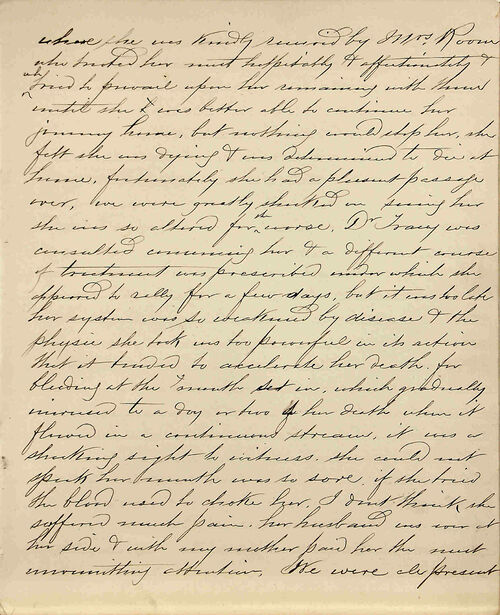 where she was kindly received by Mrs. Room
who treated her most hospitably & affectionately &
who tried to prevail upon her remaining with them
until she was better able to continue her
journey home, but nothing would stop her, she
felt she was dying & was determined to die at
home, fortunately she had a pleasent passage
over, we were greatly shocked on seeing her
she was so altered for the worse, Dr Tracy was
consulted concerning her & a different course
of treatment was prescribed under which she
appeared to rally for a few days, but it was too late
her system was so weakened by disease & the
physic she took was too powerful in its action
that it tended to accelerate her death. for
bleeding at the mouth set in, which gradually
increased to a day or two of her death when it
flowed in a continuous stream, it was a
shocking sight to witness. she could not
speak her mouth was so sore, if she tried
the blood used to choke her, I dont think she
suffered much pain. her husband was ever at
her side & with my mother paid her the most
unremitting attention, We were all present